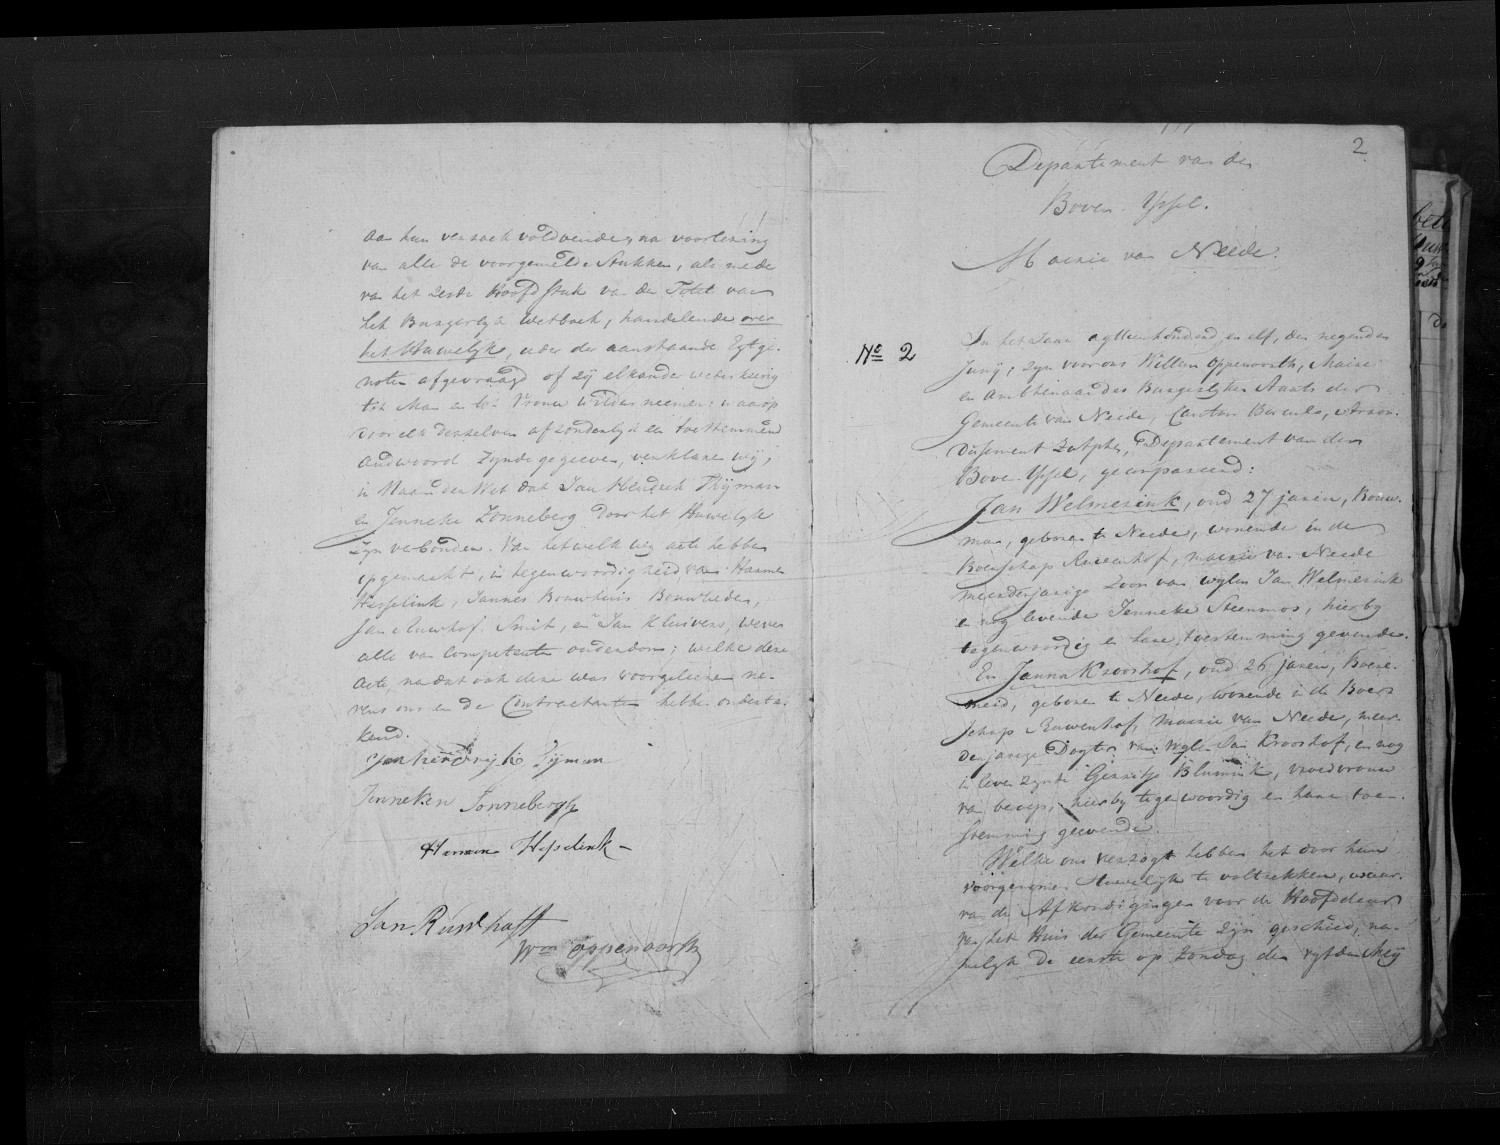 aan hun verzoek voldoende, na voorlezing
van alle de voorgemelde Stukken, als mede
van het zesde Hoofdstuk van den Titel van
het Burgerlijk wetboek, handelende over
het Huwelijk, ieder der aanstaande Egtge-
noten afgevraagd of zij elkander wederkeerig
tot Man en tot Vrouw wilden neemen: waarop
door elk derzelven afzonderlijk en toestemmend
andwoord zynde gegeven, verklare wij,
in Naam der Wet dat Jan Hendrik Thijman
en Jenneke Zonneberg door het Huwelijk
zyn verbonden. Van hetwelk wij acte hebben
opgemaakt, in tegenwoordigheid van Harmen
Hesselink, Jannes Bouwhuis Bouwlieden,
Jan Smit, en Jan Kluivers, wever
alle van competenten ouderdom; welke deze
acte, na dat ook deze was voorgelezen ne-
vens ons en de Contractanten hebben onderte-
kend.
Jan hendrijk Tijman
Jenneken Sonnebergh
Harmen Hesselink
Jan
Wm Oppenoorth
2
Departement van den
Boven Yssel.
Mairie van Neede.
No 2
In het Jaar agttienhonderd en elf, den negenden
Junij, zyn voor ons Willem Oppenoorth, Maire
en Ambtenaar des Burgerlyken Staats der
Gemeente van Neede, Canton Borculo, Arron-
dissement Zutphen, Departement van den
Boven Yssel, gecompareerd:
Jan Welmerink, oud 27 jaren, Bouw-
man, geboren te Neede, wonende in de
Boerschap Ruwenhof, mairie van Neede
meerderjarige Zoon van wylen Jan Welmerink
en nog levende Jenneke Steenmos, hierby
tegenwoordig en hare toestemming gevende.
En Janna Krooshof, oud 26 jaren, Boere-
meid, geboren te Neede, wonende in de Boer-
schap Ruwenhof, mairie van Neede, meer-
derjarige Dogter van wylen Jan Krooshof, en nog
in leven zynde Gerritje Blumink, vroedvrouw
van beroep, hierby tegenwoordig en hare toe-
stemming gevende.
Welke ons verzogt hebben het door hun
voorgenomen Huwelijk te voltrekken, waar-
van de Afkondigingen voor de Hoofddeur
van het Huis der Gemeente zijn geschied, na-
melijk de eerste op Zondag den Meij